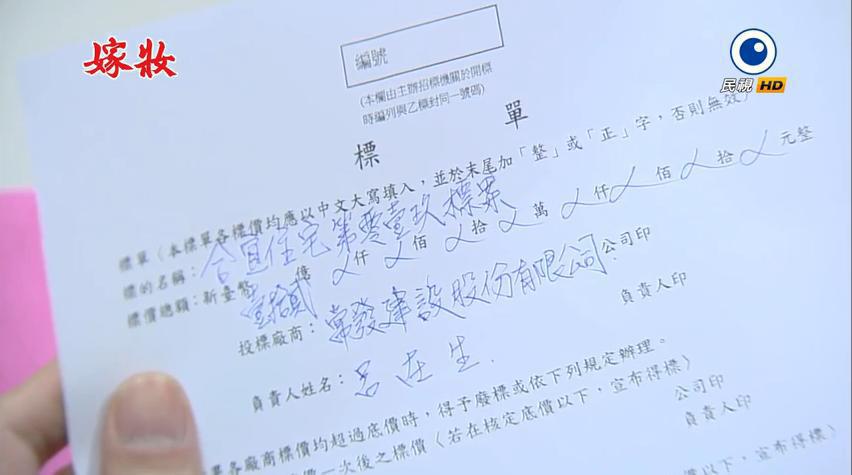 嫁妝
民視HD
編號
(本欄由主辦招標機關於開標
時編列與乙標封同一號碼)
標單
標單（本標單各標價均應以中文大寫填入，並於末尾加「整」或「正」字，否則無效）
標的名稱：合宜住宅第零壹玖標案
標價總額：新臺幣壹拾貳億 仟 佰 拾 萬 仟 佰 拾 元整
投標廠商：常發建設股份有限公司 公司印
負責人姓名：呂在生 負責人印
各廠商標價均超過底價時，得予廢標或依下列規定辦理。
一次後之標價（若在核定底價以下，宣布得標） 公司印
負責人印
以下，宣布得標）